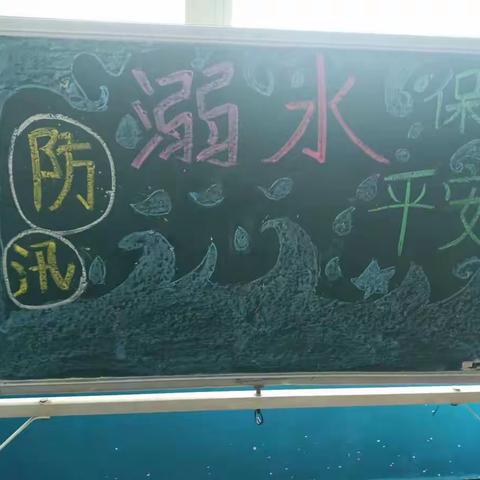 防汛
溺水
保
平安